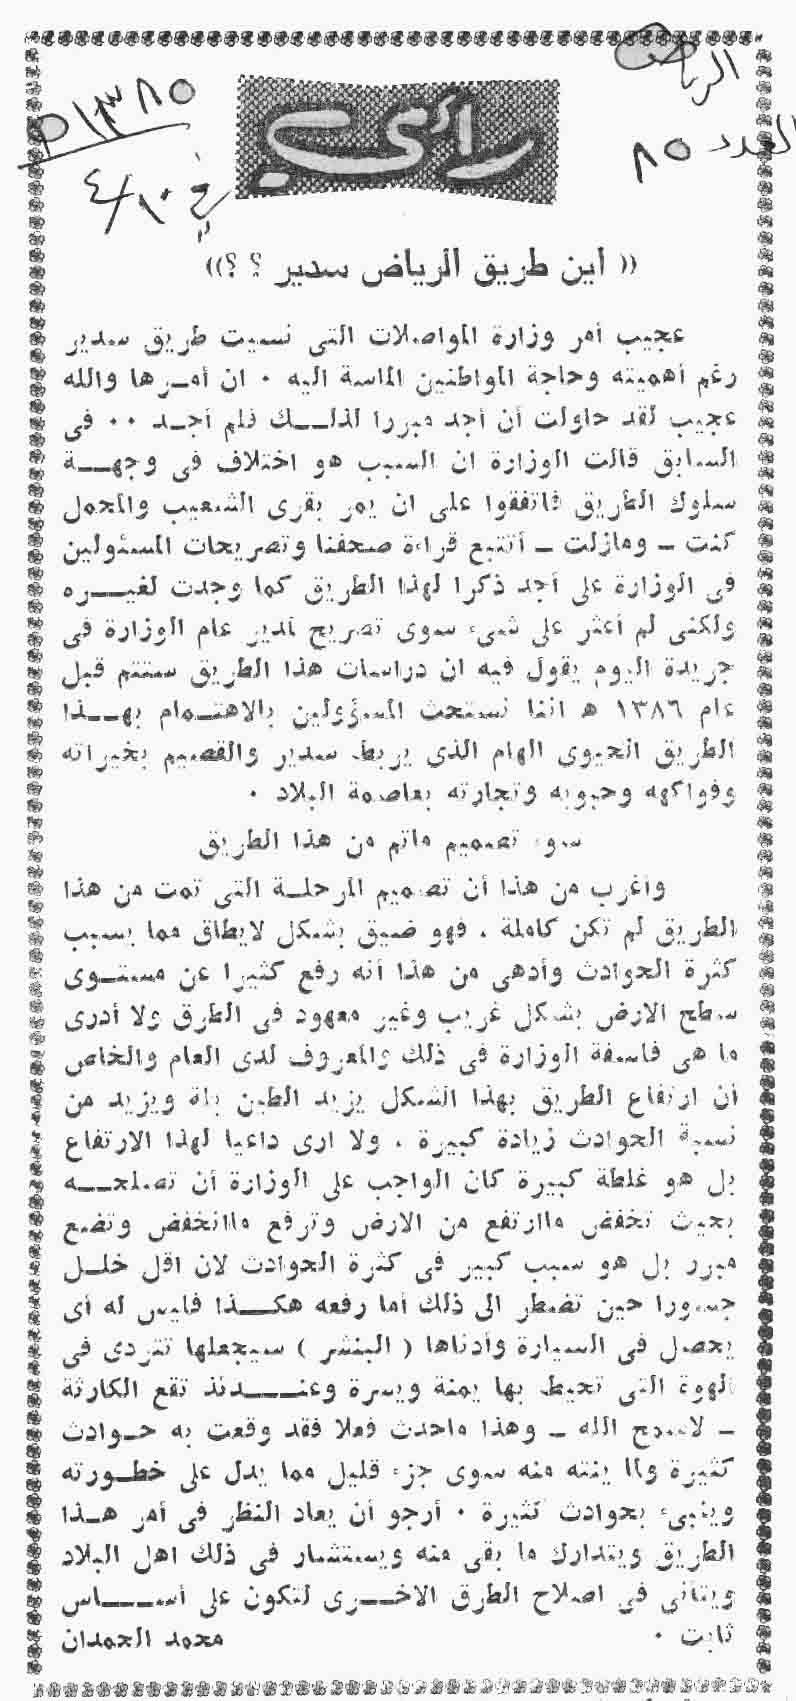 الرياض
العدد ٨٥
١٣٨٥
في ٤/١٠
رأي
(( أين طريق الرياض سدير ؟ ؟))
عجيب أمر وزارة المواصلات التى نسيت طريق سدير
رغم أهميته وحاجة المواطنين الماسة اليه ٠ ان أمـرها والله
عجيب لقد حاولت أن أجد مبررا لذلــك فلم أجـد ٠٠ فى
السابق قالت الوزارة ان السبب هو اختلاف فى وجهــة
سلوك الطريق فاتفقوا على ان يمر بقرى الشعيب والمحمل
كنت ـ ومازلت ـ أتتبع قراءة صحفنا وتصريحات المسئولين
فى الوزارة على أجد ذكرا لهذا الطريق كما وجدت لغيــره
ولكنى لم أعثر على شىء سوى تصريح لمدير عام الوزارة فى
جريدة اليوم يقول فيه ان دراسات هذا الطريق ستتم قبل
عام ١٣٨٦ هـ اننا نستحث المسؤولين بالاهتـمام بهــذا
الطريق الحيوى الهام الذى يربط سدير والقصيم بخيراته
وفواكهه وحبوبه وتجارته بعاصمة البلاد ٠
سوء تصميم ماتم من هذا الطريق
وأغرب من هذا أن تصميم المرحلـة التى تمت من هذا
الطريق لم تكن كاملة . فهو ضيق بشكل لايطاق مما يسبب
كثرة الحوادث وأدهى من هذا أنه رفع كثيرا عن مستـوى
سطح الارض بشكل غريب وغير معهود فى الطرق ولا أدرى
ما هى فلسفة الوزارة فى ذلك والمعروف لدى العام والخاص
أن ارتفاع الطريق بهذا الشكل يزيد الطين بلة ويزيد من
نسبة الحوادث زيادة كبيرة . ولا ارى داعيا لهذا الارتفاع
بل هو غلطة كبيرة كان الواجب على الوزارة أن تصلحــه
بحيث تخفض ماارتفع من الارض وترفع ماانخفض وتضع
مبرر بل هو سبب كبير فى كثرة الحوادث لان اقل خلـل
جسورا حين تضطر الى ذلك أما رفعه هكــذا فليس له أى
يحصل فى السيارة وأدناها ( البنشر ) سيجعلها تتردى فى
الهوة التى تحيط بها يمنة ويسرة وعنــدئذ تقع الكارثة
ـ لاسمح الله ـ وهذا ماحدث فعلا فقد وقعت به حـوادث
كثيرة ولما ينته منه سوى جزء قليل مما يدل على خطـورته
وينبىء بحوادث كثيرة ٠ أرجو أن يعاد النظر فى أمر هـذا
الطريق ويتدارك ما بقى منه ويستشار فى ذلك اهل البلاد
ويتأنى فى اصلاح الطرق الاخـرى لتكون على أســاس
ثابت ٠ محمد الحمدان